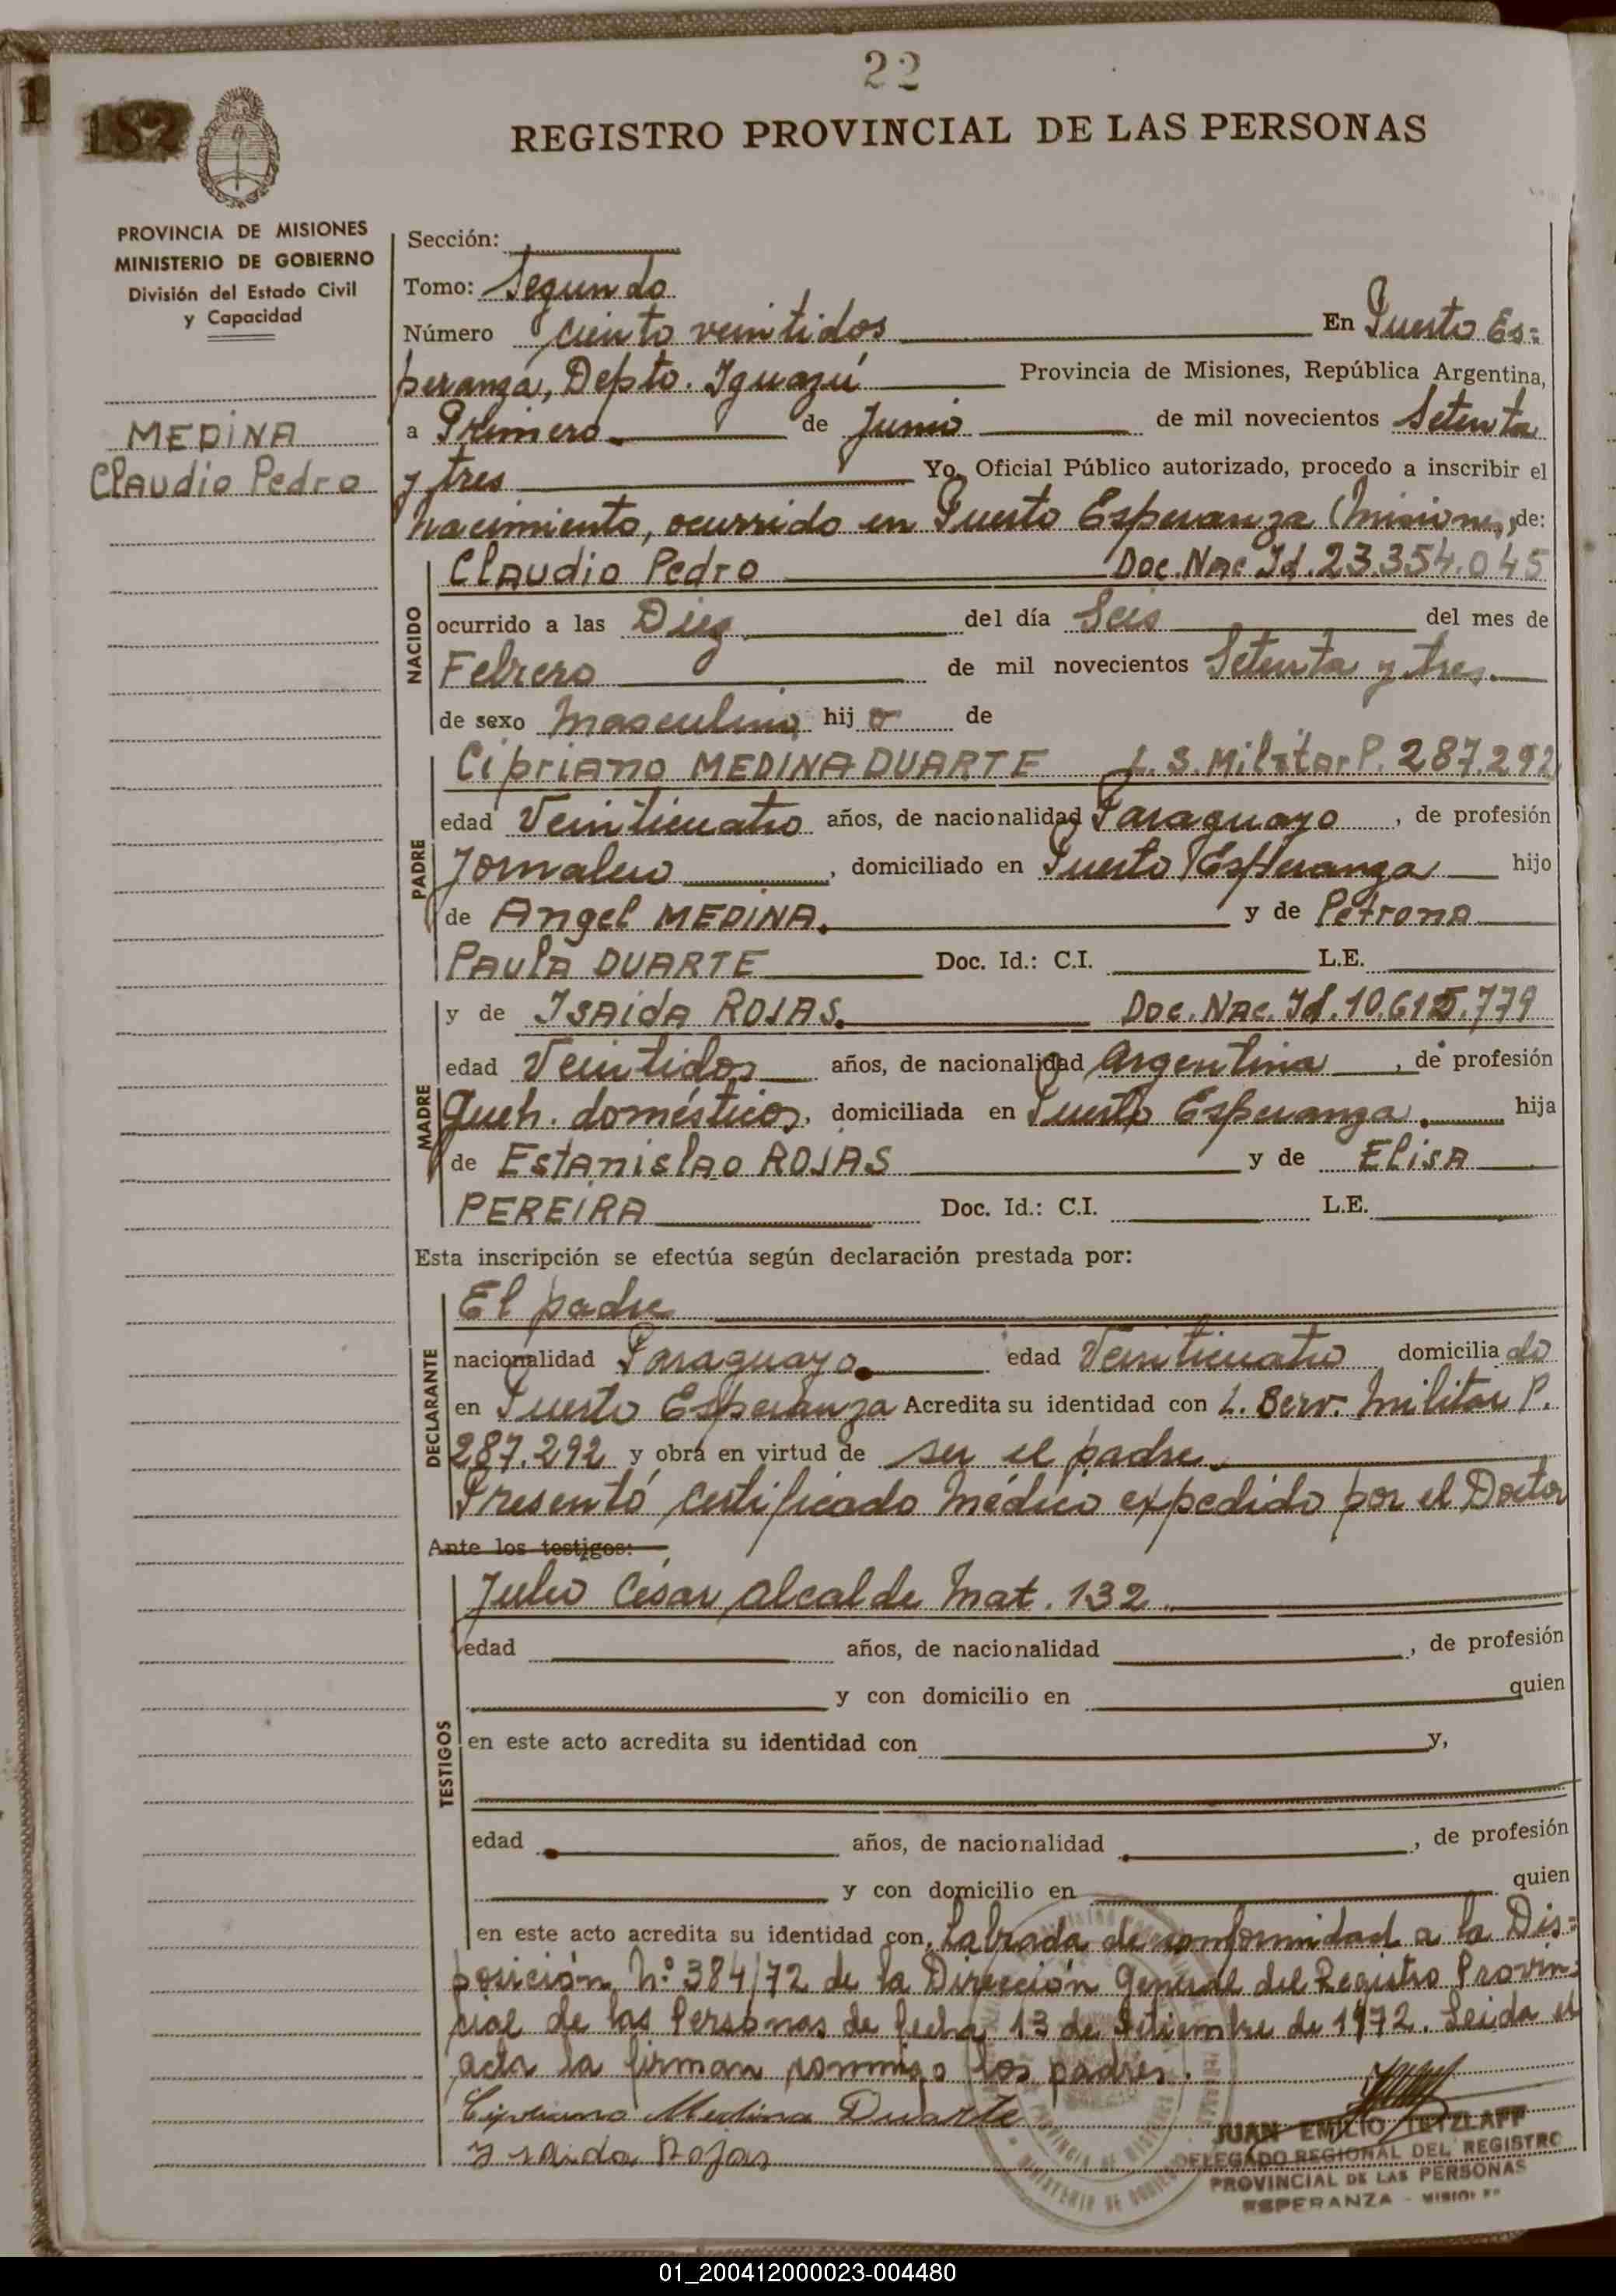 22
182
REGISTRO PROVINCIAL DE LAS PERSONAS
PROVINCIA DE MISIONES
MINISTERIO DE GOBIERNO
División del Estado Civil
y Capacidad
MEDINA
Claudio Pedro
Sección:
Tomo: Segundo
Número ciento veintidos En Puerto Es=
peranza, Depto. Iguazú Provincia de Misiones, República Argentina,
a Primero de Junio de mil novecientos Setenta
y tres Yo, Oficial Público autorizado, procedo a inscribir el
nacimiento, ocurrido en Puerto Esperanza (Misiones) de:
NACIDO
Claudio Pedro Doc. Nac Id. 23.354.045
ocurrido a las Diez del día Seis del mes de
Febrero de mil novecientos Setenta y tres
de sexo Masculino hijo de
PADRE
Cipriano MEDINA DUARTE L. S. Militar P. 287.292
edad Veinticuatro años, de nacionalidad Paraguayo, de profesión
Jornalero, domiciliado en Puerto Esperanza hijo
de Angel MEDINA. y de Petrona
Paula DUARTE Doc. Id.: C.I. L.E.
MADRE
y de Isaida ROJAS. Doc. Nac. Id. 10.615.779
edad Veintidos años, de nacionalidad Argentina, de profesión
Queh. domésticos, domiciliada en Puerto Esperanza. hija
de Estanislao ROJAS y de Elisa
PEREIRA Doc. Id.: C.I. L.E.
Esta inscripción se efectúa según declaración prestada por:
DECLARANTE
El padre
nacionalidad Paraguayo. edad Veinticuatro domiciliado
en Puerto Esperanza Acredita su identidad con L. Serv. Militar P.
287.292 y obra en virtud de ser el padre.
Presentó certificado médico expedido por el Doctor
Ante los testigos:
TESTIGOS
Julio César Alcalde Mat. 132.
edad años, de nacionalidad , de profesión
y con domicilio en quien
en este acto acredita su identidad con y,
edad años, de nacionalidad , de profesión
y con domicilio en quien
en este acto acredita su identidad con, Labrada de conformidad a la Dis=
posición Nº 384/72 de la Dirección General del Registro Provin=
cial de las Personas de fecha 13 de Setiembre de 1972. Leida el
acta la firman conmigo los padres.
Cipriano Medina Duarte
Ysaida Rojas
JUAN EMILIO TETZLAFF
DELEGADO REGIONAL DEL REGISTRO
PROVINCIAL DE LAS PERSONAS
ESPERANZA - MISIONES
01_200412000023-004480